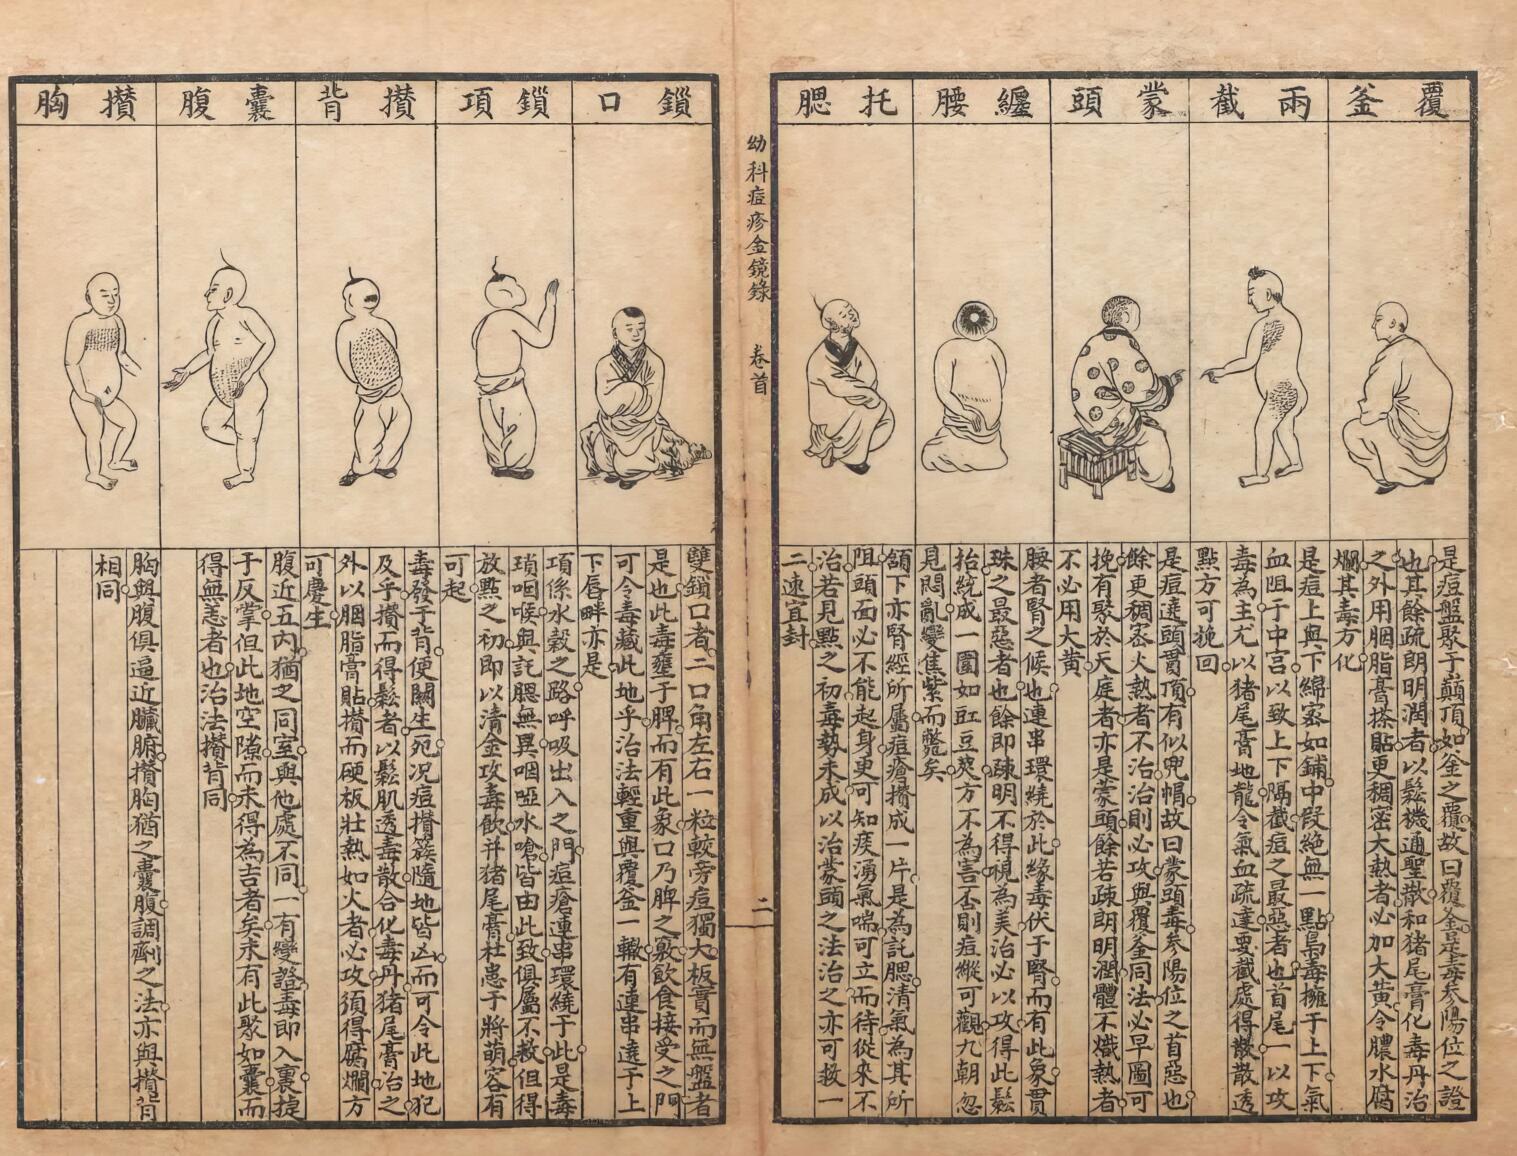 覆釜
兩截
蒙頭
纏腰
托腮
是痘盤聚于巔頂如釜之覆故曰覆釜是毒參陽位之證
也其餘疏朗明潤者以鬆機通聖散和猪尾膏化毒丹治
之外用胭脂膏搽貼更稠密大熱者必加大黃令膿水腐
爛其毒方化
是痘上與下綿密如鋪中段絶無一點烏毒擁于上下氣
血阻于中宫以致上下隔截痘之最惡者也首尾一以攻
毒為主尤以猪尾膏地龍令氣血疏達要截處得散散透
點方可挽回
是痘遶頭貫頂有似兜帽故曰蒙頭毒參陽位之首惡也
餘更稠密火熱者不治治則必攻與覆釜同法必早圖可
挽有聚於天庭者亦是蒙頭餘若疎朗明潤體不熾熱者
不必用大黄
腰者腎之候也連串環繞於此緣毒伏于腎而有此象貫
珠之最惡者也餘即疎明不得視為美治必以攻得此鬆
抬統成一圍如豇豆莢方不為害否則痘縱可觀九朝忽
見悶亂變焦紫而斃矣
頷下亦腎經所屬痘瘡攅成一片是為託腮清氣為其所
阻頭面必不能起身更可知痰湧氣喘可立而待從來不
治若見點之初毒勢未成以治蒙頭之法治之亦可救一
二速宜封
幼科痘疹金鏡錄 卷首
二
鎖口
鎖項
攅背
囊腹
攅胸
雙鎖口者二口角左右一粒較旁痘獨大板實而無盤者
是也此毒壅于脾而有此象口乃脾之竅飲食接受之門
可令毒藏此地乎治法輕重與覆釜一轍有連串遶于上
下唇畔亦是
項係水穀之路呼吸出入之門痘瘡連串環繞于此是毒
瑣咽喉與託腮無異咽啞水嗆皆由此致俱屬不救但得
放點之初即以清金攻毒飲并猪尾膏杜患于將萌容有
可起
毒發于背便關生死况痘攅簇隨地皆凶而可令此地犯
及乎攅而得鬆者以鬆肌透毒散合化毒丹猪尾膏治之
外以胭脂膏貼攅而硬板壯熱如火者必攻須得腐爛方
可慶生
腹近五內猶之同室與他處不同一有變證毒即入裏捷
于反掌但此地空隙而未得為吉者矣未有此聚如囊而
得無恙者也治法攅背同
胸與腹俱逼近臟腑攅胸猶之囊腹調劑之法亦與攅背
相同